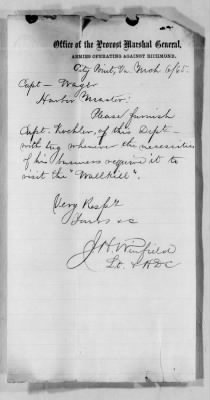 Office of the Provost Marshal General,
ARMIES OPERATING AGAINST RICHMOND,
City Point, Va. Mch 6/65.
Capt - Wager
Harbor Master:
Please furnish
Capt. Koehler, of this Dept -
with tug whenever the necessities
of his business require it to
visit the "Wallkill".
Very Respt
Yours &c
J H Winfield
Lt. & ADC